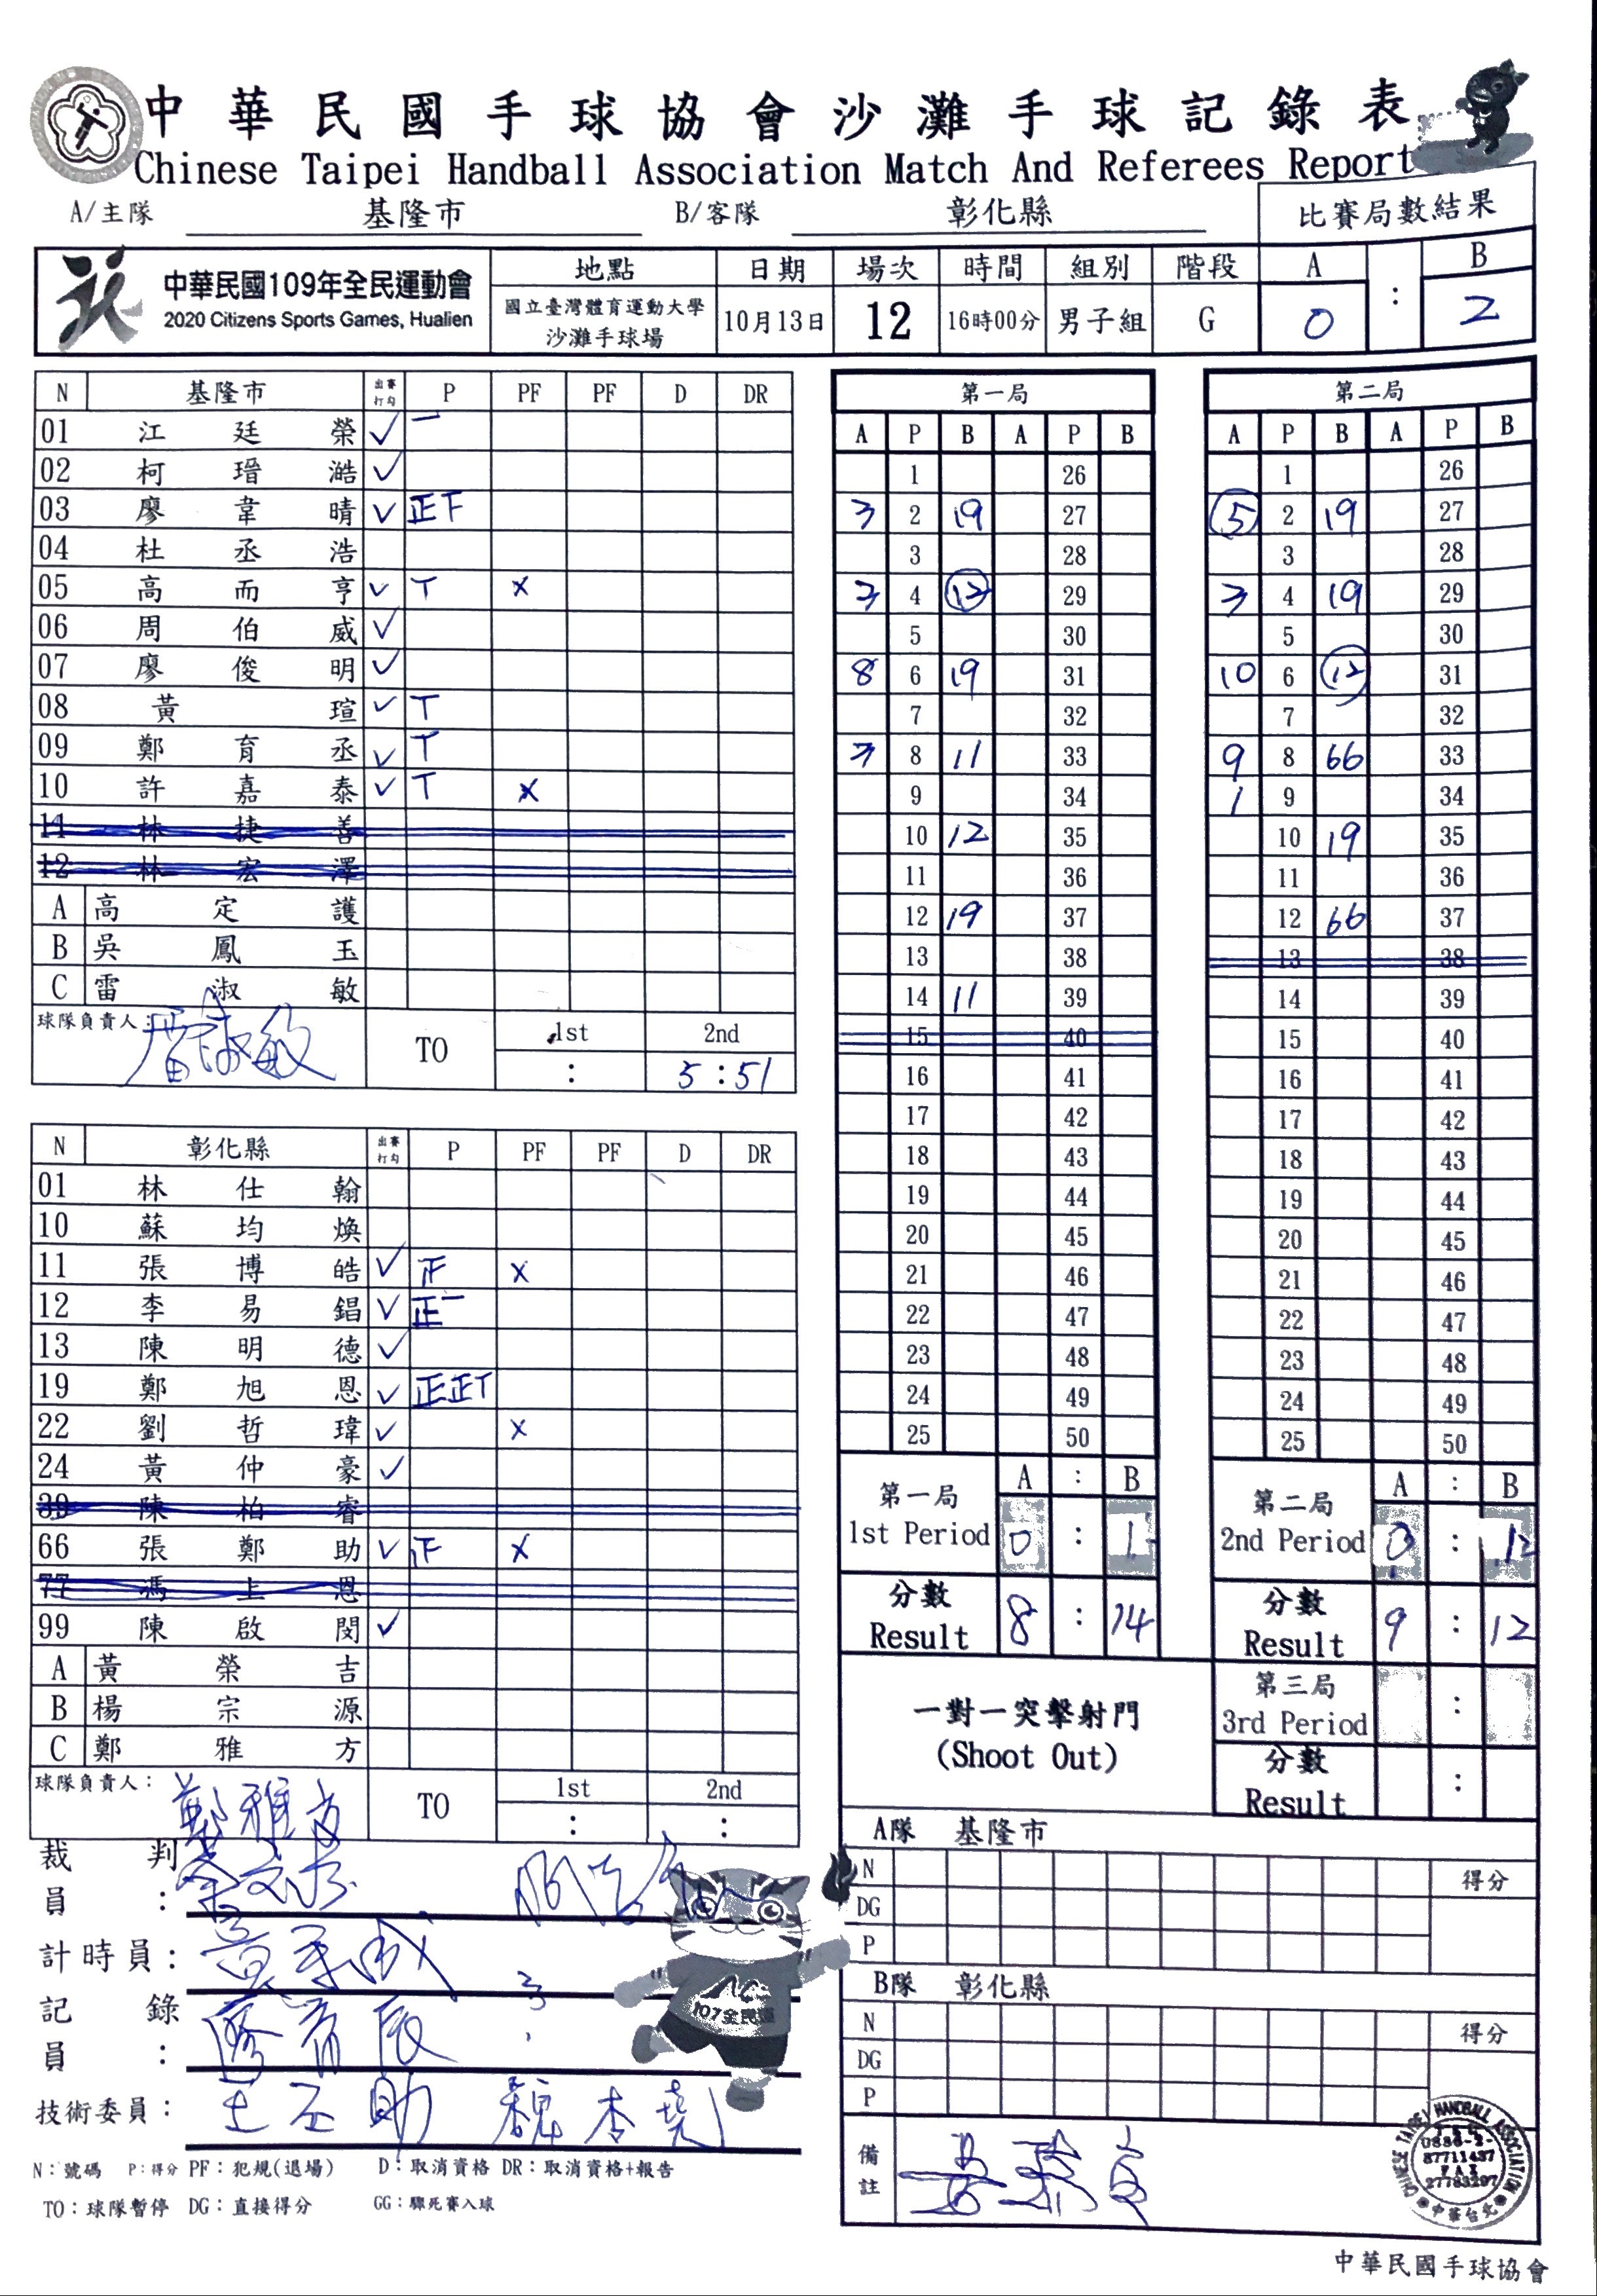 中華民國手球協會沙灘手球記錄表
Chinese Taipei Handball Association Match And Referees Report
A/主隊 基隆市 B/客隊 彰化縣 比賽局數結果
中華民國109年全民運動會 地點 日期 場次 時間 組別 階段 A : B
2020 Citizens Sports Games, Hualien 國立臺灣體育運動大學 沙灘手球場 10月13日 12 16時00分 男子組 G 0 2
N 基隆市 出賽打勾 P PF PF D DR
01 江廷榮 ✓ 一
02 柯瑨澔 ✓
03 廖韋晴 ✓ 正T
04 杜丞浩
05 高而亨 ✓ T x
06 周伯威 ✓
07 廖俊明 ✓
08 黃瑄 ✓ T
09 鄭育丞 ✓ T
10 許嘉泰 ✓ T x
11 林捷善
12 林宏澤
A 高定護
B 吳鳳玉
C 雷淑敏
球隊負責人: 雷淑敏 TO 1st 2nd
: 5:51
N 彰化縣 出賽打勾 P PF PF D DR
01 林仕翰
10 蘇均煥
11 張博皓 ✓ 正 x
12 李易錩 ✓ 正一
13 陳明德 ✓
19 鄭旭恩 ✓ 正正T
22 劉哲瑋 ✓ x
24 黃仲豪 ✓
39 陳柏睿
66 張鄭助 ✓ 正 x
77 馮上恩
99 陳啟閔 ✓
A 黃榮吉
B 楊宗源
C 鄭雅方
球隊負責人: 鄭雅方 TO 1st 2nd
: :
裁判員:
計時員:
記錄員:
技術委員:
N:號碼 P:得分 PF:犯規(退場) D:取消資格 DR:取消資格+報告
TO:球隊暫停 DG:直接得分 GG:驟死賽入球
107全民運
第一局
A P B A P B
1 26
3 2 19 27
3 28
3 4 12 29
5 30
8 6 19 31
7 32
3 8 11 33
9 34
10 12 35
11 36
12 19 37
13 38
14 11 39
15 40
16 41
17 42
18 43
19 44
20 45
21 46
22 47
23 48
24 49
25 50
第一局 A : B
1st Period 0 : 1
分數
Result 8 : 14
第二局
A P B A P B
1 26
5 2 19 27
3 28
3 4 19 29
5 30
10 6 12 31
7 32
9 8 66 33
1 9 34
10 19 35
11 36
12 66 37
13 38
14 39
15 40
16 41
17 42
18 43
19 44
20 45
21 46
22 47
23 48
24 49
25 50
第二局 A : B
2nd Period 0 : 12
分數
Result 9 : 12
一對一突擊射門
(Shoot Out)
第三局
3rd Period :
分數
Result :
A隊 基隆市
N 得分
DG
P
B隊 彰化縣
N 得分
DG
P
備註
CHINESE TAIPEI HANDBALL ASSOCIATION
中華台北
中華民國手球協會